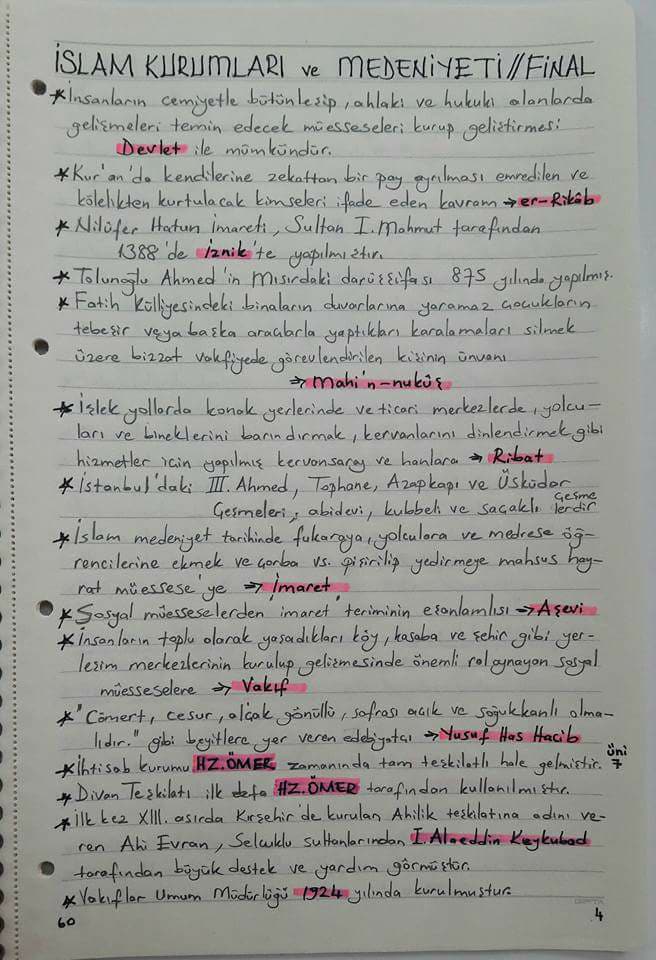 İSLAM KURUMLARI ve MEDENİYETİ // FİNAL
* İnsanların cemiyetle bütünleşip, ahlaki ve hukuki alanlarda
gelişmeleri temin edecek müesseseleri kurup geliştirmesi
Devlet ile mümkündür.
* Kur'an'da kendilerine zekattan bir pay ayrılması emredilen ve
kölelikten kurtulacak kimseleri ifade eden kavram → er-Rikâb
* Nilüfer Hatun İmareti, Sultan I. Mahmut tarafından
1388'de İznik'te yapılmıştır.
* Tolunoğlu Ahmed'in Mısırdaki darüşşifası 875 yılında yapılmış.
* Fatih Külliyesindeki binaların duvarlarına yaramaz çocukların
tebeşir veya başka araçlarla yaptıkları karalamaları silmek
üzere bizzat vakfiyede görevlendirilen kişinin ünvanı
⇒ Mahi'n-nukûş
* İşlek yollarda konak yerlerinde ve ticari merkezlerde, yolcu-
ları ve bineklerini barındırmak, kervanlarını dinlendirmek gibi
hizmetler için yapılmış kervansaray ve hanlara → Ribat
* İstanbul'daki III. Ahmed, Tophane, Azapkapı ve Üsküdar
Çeşmeleri; abidevi, kubbeli ve saçaklı çeşme
lerdir
* İslam medeniyet tarihinde fukaraya, yolculara ve medrese öğ-
rencilerine ekmek ve çorba vs. pişirilip yedirmeye mahsus hay-
rat müessese'ye ⇒ İmaret
* Sosyal müesseselerden imaret teriminin eşanlamlısı → Aşevi
* İnsanların toplu olarak yaşadıkları köy, kasaba ve şehir gibi yer-
leşim merkezlerinin kurulup gelişmesinde önemli rol oynayan sosyal
müesseselere ⇒ Vakıf
* "Cömert, cesur, alçak gönüllü, safrası açık ve soğukkanlı olma-
lıdır." gibi beyitlere yer veren edebiyatçı → Yusuf Has Hacib
* İhtisab kurumu HZ. ÖMER zamanında tam teşkilatlı hale gelmiştir. üni
7
* Divan Teşkilatı ilk defa HZ. ÖMER tarafından kullanılmıştır.
* İlk kez XIII. asırda Kırşehir'de kurulan Ahilik teşkilatına adını ve-
ren Ahi Evran, Selçuklu sultanlarından I. Alaeddin Keykubad
tarafından büyük destek ve yardım görmüştür.
* Vakıflar Umum Müdürlüğü 1924 yılında kurulmuştur.
60
4